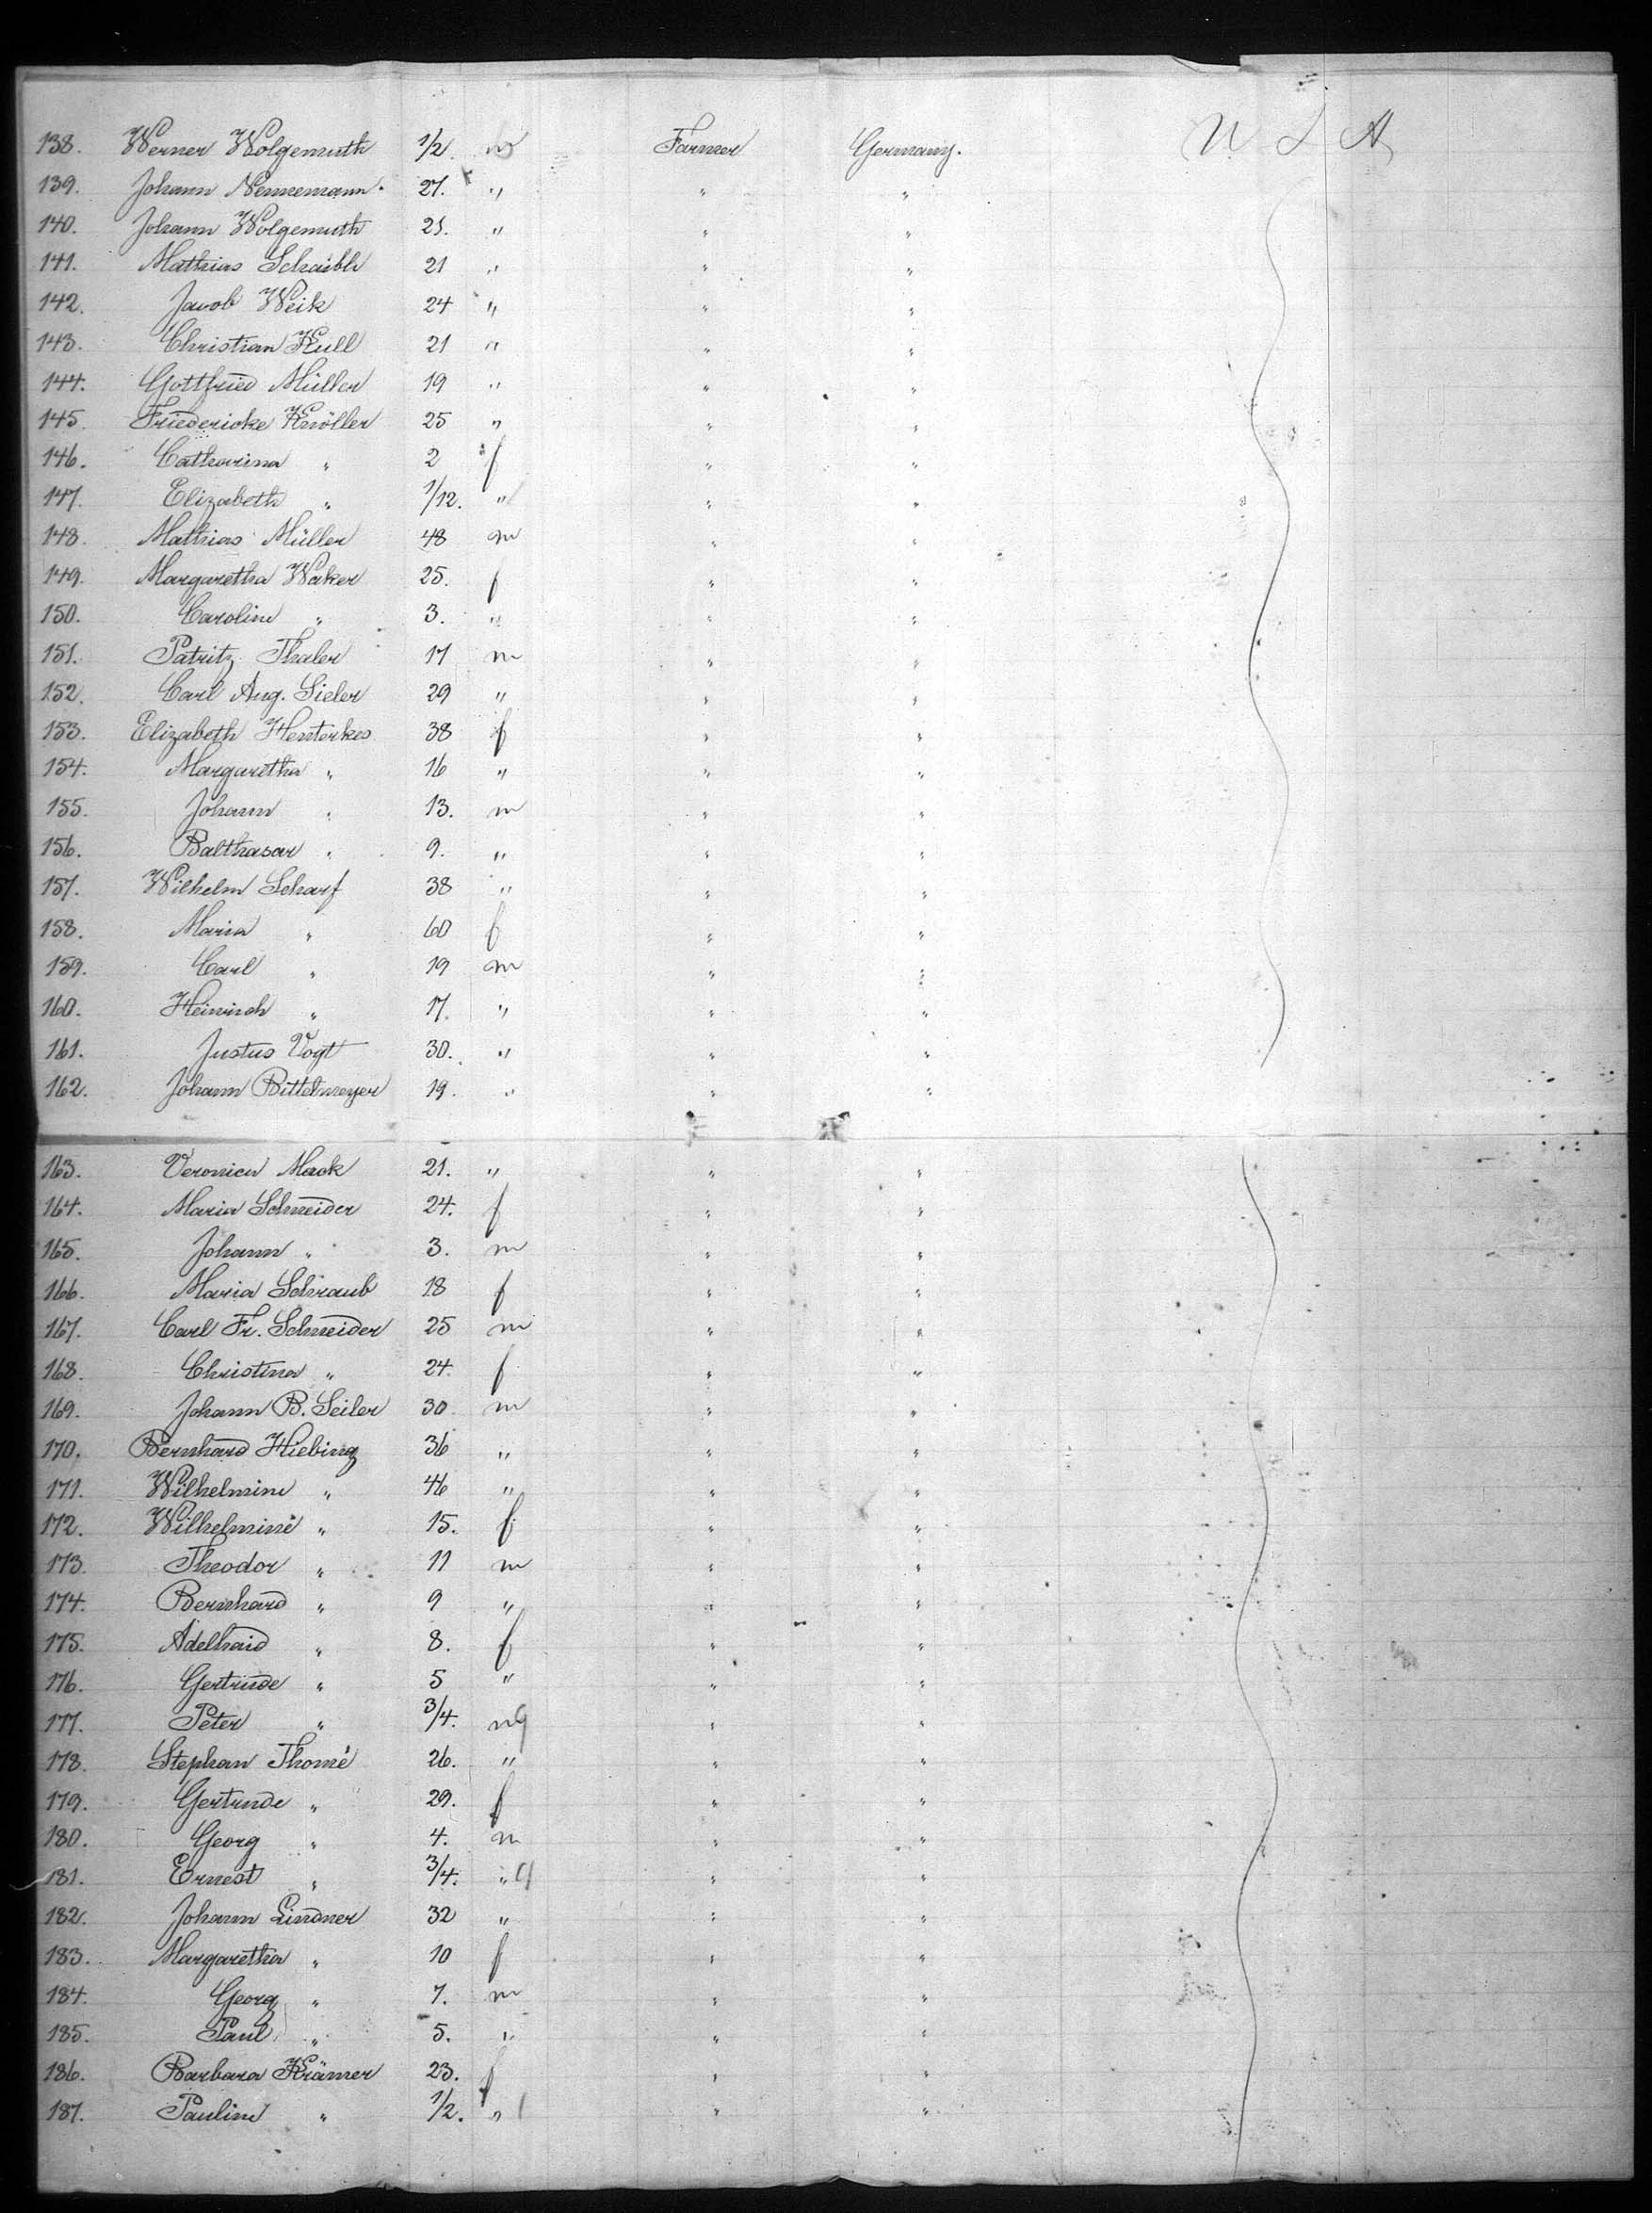 138. Werner Wolgemuth 1/2. m Farmer Germany. U S A
139. Johann Nennemann. 27. " " "
140. Johann Wolgemuth 21. " " "
141. Mathias Schaible 21 " " "
142. Jacob Weik 24 " " "
143. Christian Kull 21 " " "
144. Gottfried Müller 19 " " "
145. Friedericke Knöller 25 " " "
146. Catharina " 2 f " "
147. Elizabeth " 1/12. " " "
148. Mathias Müller 48 m " "
149. Margaretha Waker 25. f " "
150. Caroline " 3. " " "
151. Patritz Thaler 17 m " "
152. Carl Aug. Sieler 29 " " "
153. Elizabeth Henterkes 38 f " "
154. Margaretha " 16 " " "
155. Johann " 13. m " "
156. Balthasar " 9. " " "
157. Wilhelm Scharf 38 " " "
158. Maria " 60 f " "
159. Carl " 19 m " "
160. Heinrich " 17. " " "
161. Justus Vogt 30. " " "
162. Johann Bittelmeyer 19. " " "
163. Veronica Mack 21. " " "
164. Maria Schneider 24. f " "
165. Johann " 3. m " "
166. Maria Schraub 18 f " "
167. Carl Fr. Schneider 25 m " "
168. Christina " 24. f " "
169. Johann B. Seiler 30 m " "
170. Bernhard Hiebing 36 " " "
171. Wilhelmine " 46 " " "
172. Wilhelmine " 15. f " "
173. Theodor " 11 m " "
174. Bernhard " 9 " " "
175. Adelhaid " 8. f " "
176. Gertrude " 5 " " "
177. Peter " 3/4. m 9 " "
178. Stephan Thomé 26. " " "
179. Gertrude " 29. f " "
180. Georg " 4. m " "
181. Ernest " 3/4. " 9 " "
182. Johann Lindner 32 " " "
183. Margaretha " 10 f " "
184. Georg " 7. m " "
185. Paul " 5. " " "
186. Barbara Krämer 23. f " "
187. Pauline " 1/2. " " "